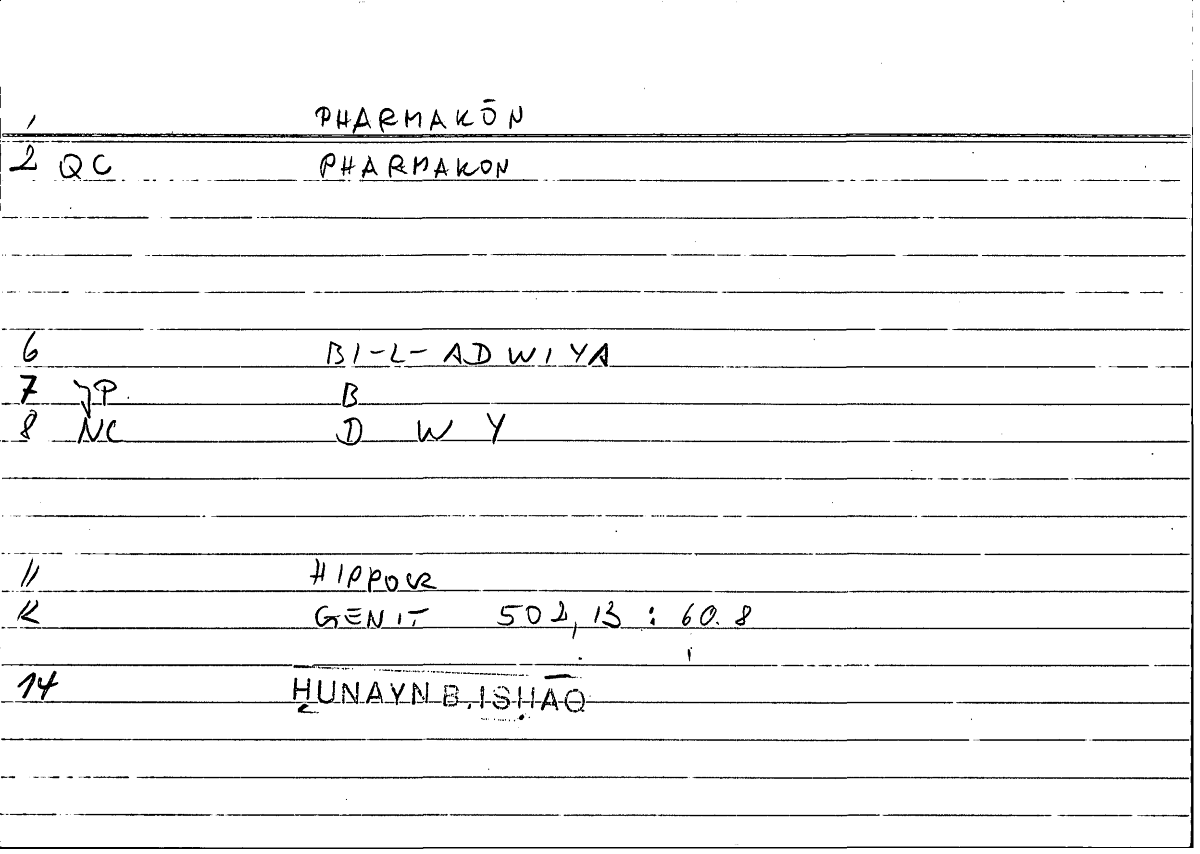 1 PHARMAKŌN
2 QC PHARMAKON
6 BI-L-ADWIYA
7 JP. B
8 NC D W Y
11 HIPPOCR
12 GENIT 502,13 : 60.8
14 ḤUNAYN B. ISḤĀQ